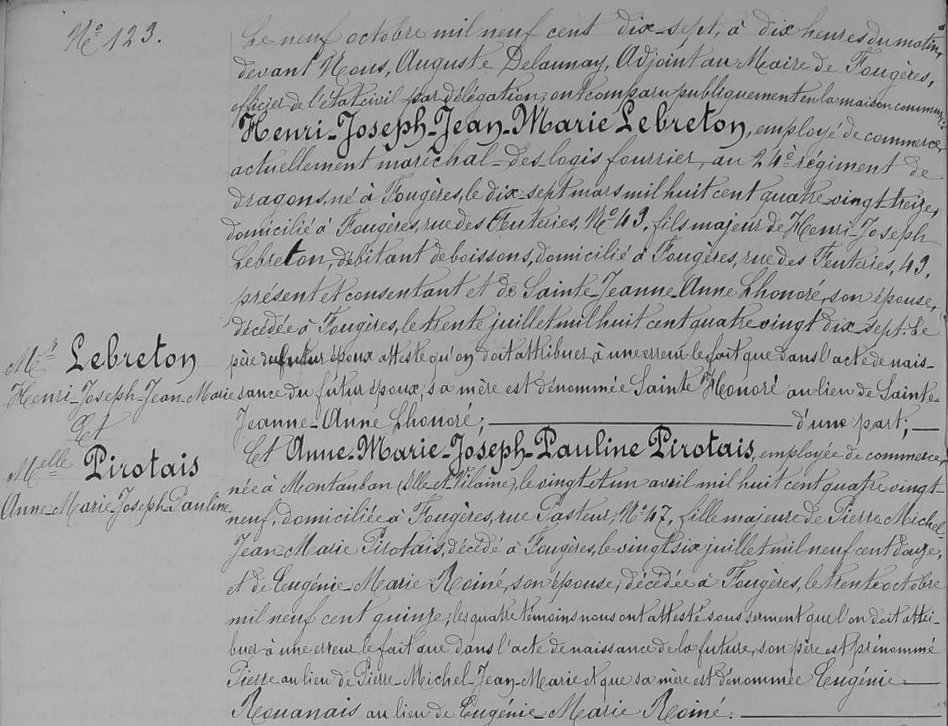 N° 123.
Le neuf octobre mil neuf cent dix-sept, à dix heures du matin,
devant Nous, Auguste Delaunay, Adjoint au Maire de Fougères,
officier de l'état civil par délégation, ont comparu publiquement en la maison commune:
Henri-Joseph-Jean-Marie Lebreton, employé de commerce,
actuellement maréchal-des-logis fourrier, au 24e régiment de
dragons, né à Fougères, le dix-sept mars mil huit cent quatre vingt treize,
domicilié à Fougères, rue des Feuteries, N° 43, fils majeur de Henri-Joseph
Lebreton, débitant de boissons, domicilié à Fougères, rue des Feuteries, 43,
présent et consentant et de Sainte-Jeanne-Anne Lhonoré, son épouse,
décédée à Fougères, le trente juillet mil huit cent quatre vingt dix-sept. Le
père du futur époux atteste qu'on doit attribuer à une erreur le fait que dans l'acte de nais-
sance du futur époux, sa mère est dénommée Sainte Honoré au lieu de Sainte-
Jeanne-Anne Lhonoré; d'une part;
Mr Lebreton
Henri-Joseph-Jean-Marie
Et
Melle Pirotais
Anne-Marie-Joseph-Pauline
Et Anne-Marie-Joseph-Pauline Pirotais, employée de commerce,
née à Montauban (Ille et Vilaine), le vingt et un avril mil huit cent quatre vingt-
neuf, domiciliée à Fougères, rue Pasteur, N° 47, fille majeure de Pierre-Michel-
Jean-Marie Pirotais, décédé à Fougères, le vingt six juillet mil neuf cent douze,
et de Eugénie-Marie Roiné, son épouse, décédée à Fougères, le trente octobre
mil neuf cent quinze; les quatre témoins nous ont attesté sous serment que l'on doit attri-
buer à une erreur le fait que dans l'acte de naissance de la future, son père est prénommé
Pierre au lieu de Pierre-Michel-Jean-Marie et que sa mère est dénommée Eugénie
Rouanais au lieu de Eugénie-Marie Roiné.